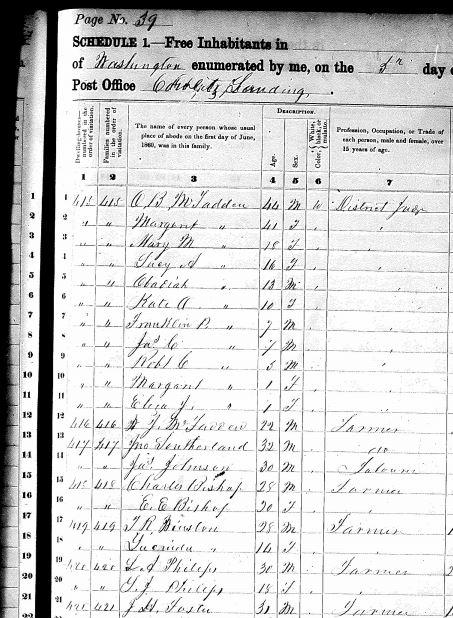 Page No. 39
SCHEDULE 1.—Free Inhabitants in
of Washington enumerated by me, on the 5th day o
Post Office Cowlitz Landing.
Dwelling-houses— numbered in the order of visitation.
Families numbered in the order of visitation.
The name of every person whose usual place of abode on the first day of June, 1860, was in this family.
DESCRIPTION.
Age.
Sex.
Color, White, black, or mulatto.
Profession, Occupation, or Trade of each person, male and female, over 15 years of age.
1 2 3 4 5 6 7
1 415 415 O B McFadden 44 M W District Judge
2 " " Margaret " 41 F
3 " " Mary M " 18 F
4 " " Lucy A " 16 F
5 " " Obadiah " 13 M
6 " " Kate A " 10 F
7 " " Franklin P. " 7 M
8 " " Jas C " 7 M
9 " " Robt C " 5 M
10 " " Margaret " 1 F
11 " " Eliza J. " 1 F
12 416 416 McFadden 22 M Farmer
13 417 417 Jno Southerland 32 M do
14 " " Jas Johnson 30 M
15 418 418 Charles Bishop 28 M Farmer
16 " " E. E. Bishop 20 F
17 419 419 Winston 28 M Farmer
18 " " Lucinda " 14 F
19 420 420 L. A Philips 30 M Farmer
20 " " Philips 18 F
21 421 421 J. H. Foster 31 M Farmer